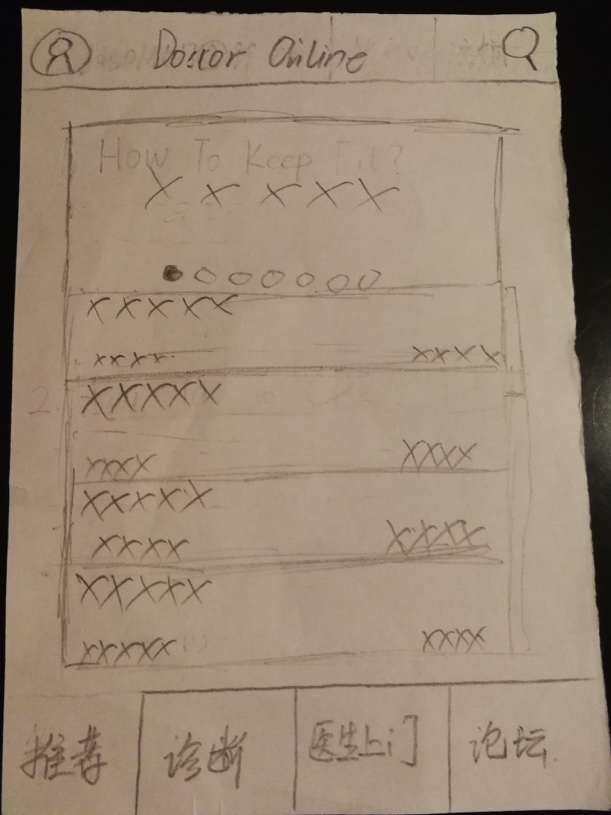 Doctor Online
How To Keep Fit?
X X X X X
X X X X X
XXXX XXXX
XXXXX
XXXX XXXX
XXXXX
XXXX XXXX
XXXXX
XXXXX XXXX
推荐 诊断 医生上门 论坛